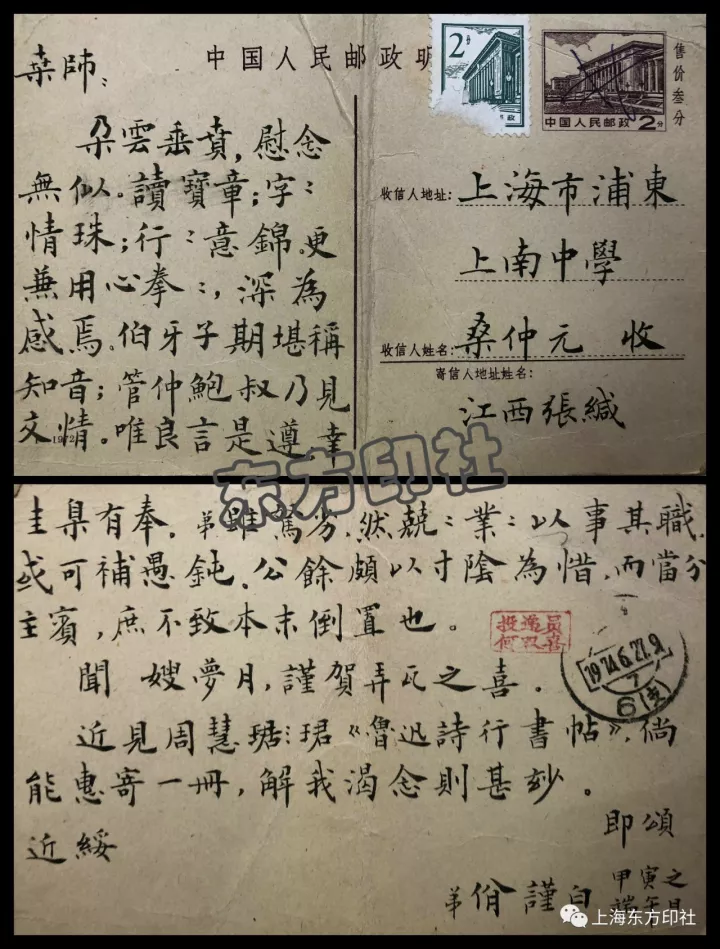 桒師：
中国人民邮政明
2分
售价叁分
中国人民邮政 2分
朶雲垂賁，慰念
無似。讀寶章；字：
情珠；行：意錦。更
兼用心拳：，深為
感焉。伯牙子期堪稱
知音；管仲鮑叔乃見
交情。唯良言是遵，幸
收信人地址：上海市浦東
上南中學
收信人姓名：桑仲元 收
寄信人地址姓名：
江西張緘
东方印社
圭臬有奉。弟雖駑劣，然兢：業：以事其職，
或可補愚鈍。公餘頗以寸陰為惜，而當分
主賓，庶不致本末倒置也。
投递员
何双喜
1974.6.27.9
6(支)
聞 嫂夢月，謹賀弄瓦之喜。
近見周慧珺《魯迅詩行書帖》，倘
能惠寄一冊，解我渴念則甚妙。
即頌
近綏
弟 謹白
甲寅之
端午月
上海东方印社